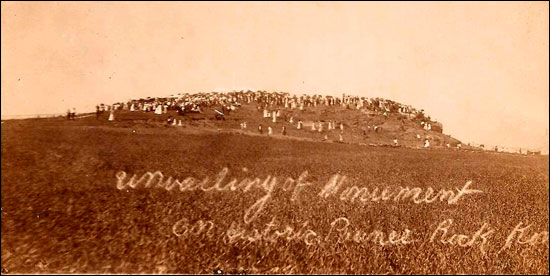 unvailing of Monument
on Historic Pawnee Rock